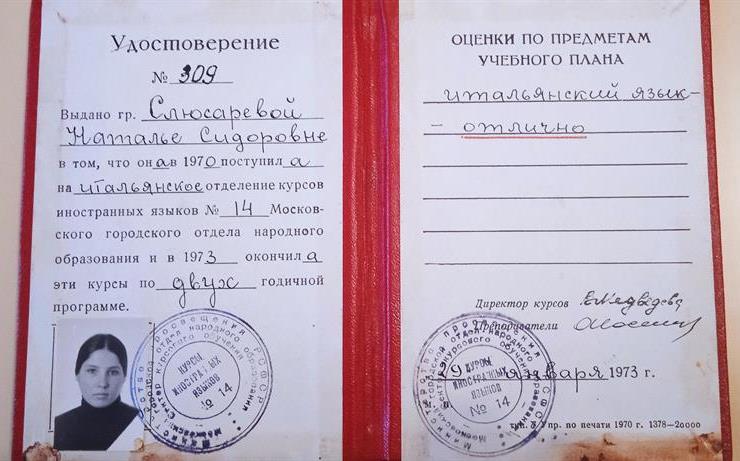 Удостоверение
№ 309
Выдано гр. Слюсаревой
Наталье Сидоровне
в том, что она в 1970 поступила
на итальянское отделение курсов
иностранных языков № 14 Москов-
ского городского отдела народного
образования и в 1973 окончила
эти курсы по двух годичной
программе.
КУРСЫ
ИНОСТРАННЫХ
ЯЗЫКОВ
№ 14
ОЦЕНКИ ПО ПРЕДМЕТАМ
УЧЕБНОГО ПЛАНА
итальянский язык-
- отлично
Директор курсов Е.Медведева
Преподаватели
января 1973 г.
КУРСЫ
ИНОСТРАННЫХ
ЯЗЫКОВ
№ 14
М. П.
Упр. по печати 1970 г. 1378—20000